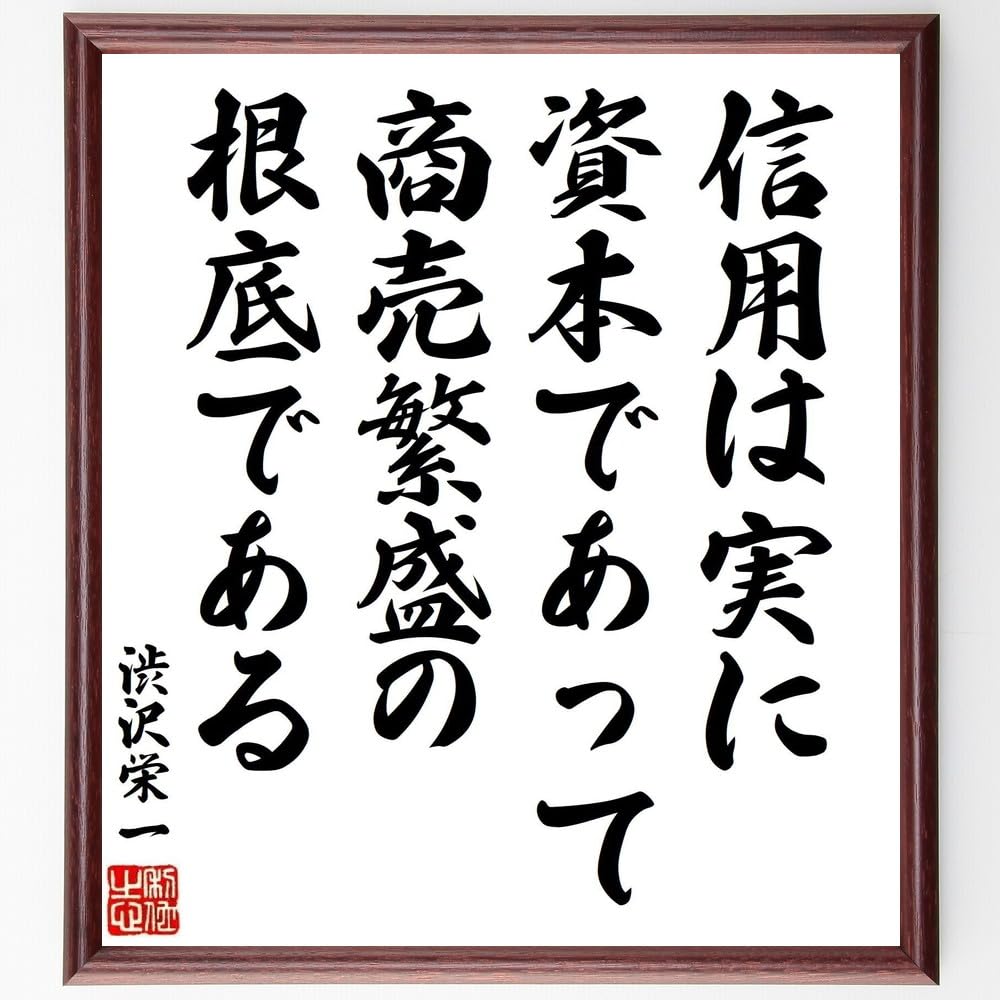 信用は実に
資本であって
商売繁盛の
根底である
渋沢栄一